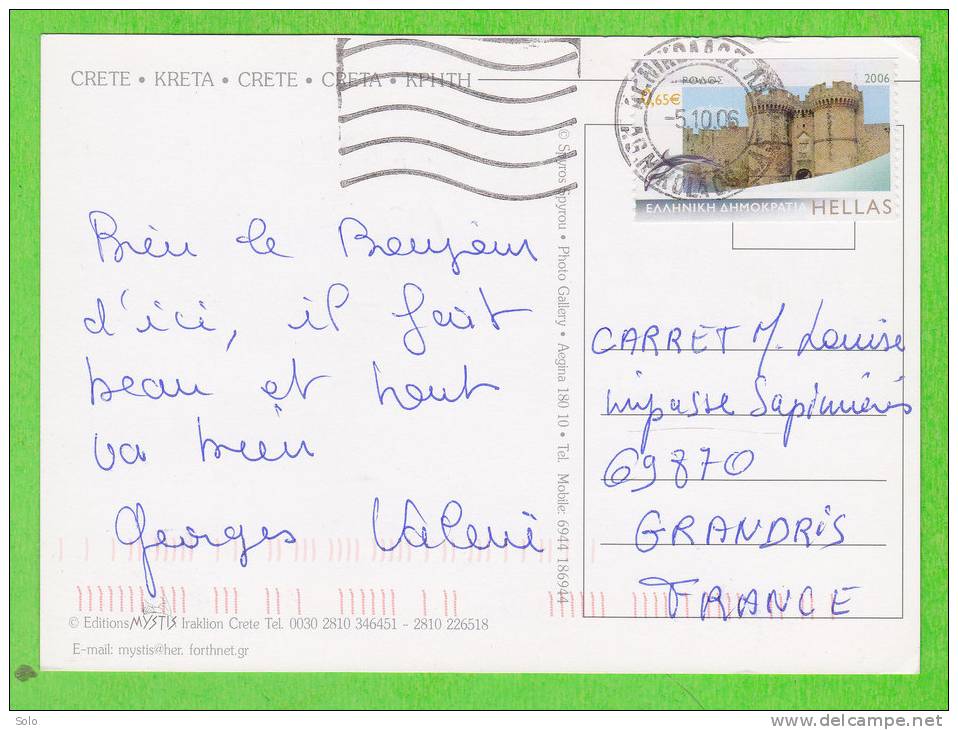 CRETE • KRETA • CRETE • CRETA • ΚΡΗΤΗ
ΡΟΔΟΣ
2006
0,65€
-5.10.06
ΕΛΛΗΝΙΚΗ ΔΗΜΟΚΡΑΤΙΑ HELLAS
Bien le Bonjour
d'ici, il fait
beau et tout
va bien
Georges
CARRET M. Louise
impasse Sapinières
69870
GRANDRIS
FRANCE
© Spyros Spyrou • Photo Gallery • Aegina 180 10 • Tel. Mobile: 6944 186944
© Editions MYSTIS Iraklion Crete Tel. 0030 2810 346451 - 2810 226518
E-mail: mystis@her. forthnet.gr
Solo
http://www.delcampe.net